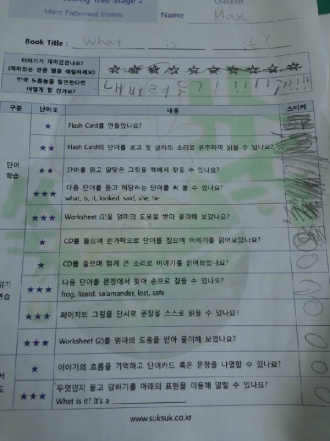 Tree Stage 2
Checklist
More Patterned Stories
Name Max
Book Title : What is it?
이야기가 재미있었나요?
(재미있는 만큼 별을 색칠하세요)
☆☆☆☆☆☆☆☆☆☆
만약 도롱뇽을 발견한다면
어떻게 할 건가요?
구분 난이도 내용 스티커
단어
학습
★ Flash Card를 만들었나요?
★★ Flash Card의 단어를 보고 첫 글자의 소리로 유추하며 읽을 수 있나요?
★★ 단어를 읽고 알맞은 그림을 책에서 찾을 수 있나요?
★★★ 다음 단어를 듣고 해당하는 단어를 써 볼 수 있나요?
what, is, it, looked, said, she, he
★★★ Worksheet (1)을 엄마의 도움을 받아 풀이해 보았나요?
★ CD를 들으며 손가락으로 단어를 짚으며 이야기를 읽어보았나요?
★ CD를 들으며 함께 큰 소리로 이야기를 읽어보았나요?
읽기
연습
★★★ 다음 단어를 문장에서 찾아 손으로 짚을 수 있나요?
frog, lizard, salamander, lost, safe
★★★ 페이지의 그림을 단서로 문장을 스스로 읽을 수 있나요?
★★★ Worksheet (2)를 엄마의 도움을 받아 풀이해 보았나요?
★ 이야기의 흐름을 기억하고 단어카드 혹은 문장을 나열할 수 있나요?
★★★ 무엇인지 묻고 답하기를 아래의 표현을 이용해 말할 수 있나요?
What is it? It's a
www.suksuk.co.kr